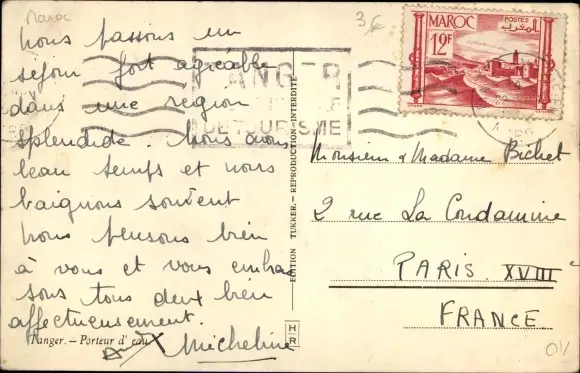 Maroc
3€
Nous passons un
séjour fort agréable
dans une région
splendide. Nous avons
beau temps et nous
baignons souvent
Nous pensons bien
à vous et vous embra
sons tous deux bien
affectueusement.
Micheline
Tanger. – Porteur d'eau
TANGER
DE TOURISME
EDITION TUKKER. – REPRODUCTION INTERDITE
H R
MAROC
POSTES
المغرب
12F
Monsieur & Madame Bichet
2 rue La Condamine
PARIS. XVIIIe
FRANCE.